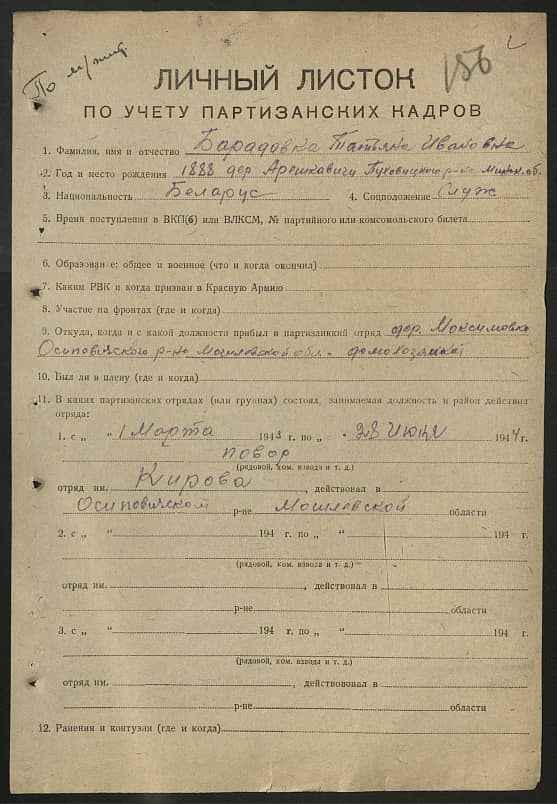 По
156
ЛИЧНЫЙ ЛИСТОК
ПО УЧЕТУ ПАРТИЗАНСКИХ КАДРОВ
1. Фамилия, имя и отчество Барадовка Татьяна Ивановна
2. Год и место рождения 1888 дер Арешкавичи Пуховицкого р-на Минск. об.
3. Национальность Беларус 4. Соцположение Служ
5. Время поступления в ВКП(б) или ВЛКСМ, № партийного или комсомольского билета
6. Образование: общее и военное (что и когда окончил)
7. Каким РВК и когда призван в Красную Армию
8. Участие на фронтах (где и когда)
9. Откуда, когда и с какой должности прибыл в партизанский отряд дер. Максимовка
Осиповичского р-на Могилевской обл. домохозяйка
10. Был ли в плену (где и когда)
11. В каких партизанских отрядах (или группах) состоял, занимаемая должность и район действия
отряда:
1. с „ " 1 Марта 1943 г. по „ " 28 Июня 1944 г.
повар
(рядовой, ком. взвода и т. д.)
отряд им. Кирова, действовал в
Осиповичском р-не Могилевской области
2. с „ " 194 г. по „ " 194 г.
(рядовой, ком. взвода и т. д.)
отряд им. , действовал в
р-не области
3. с „ " 194 г. по „ " 194 г.
(рядовой, ком. взвода и т. д.)
отряд им. , действововал в
р-не области
12. Ранения и контузии (где и когда)